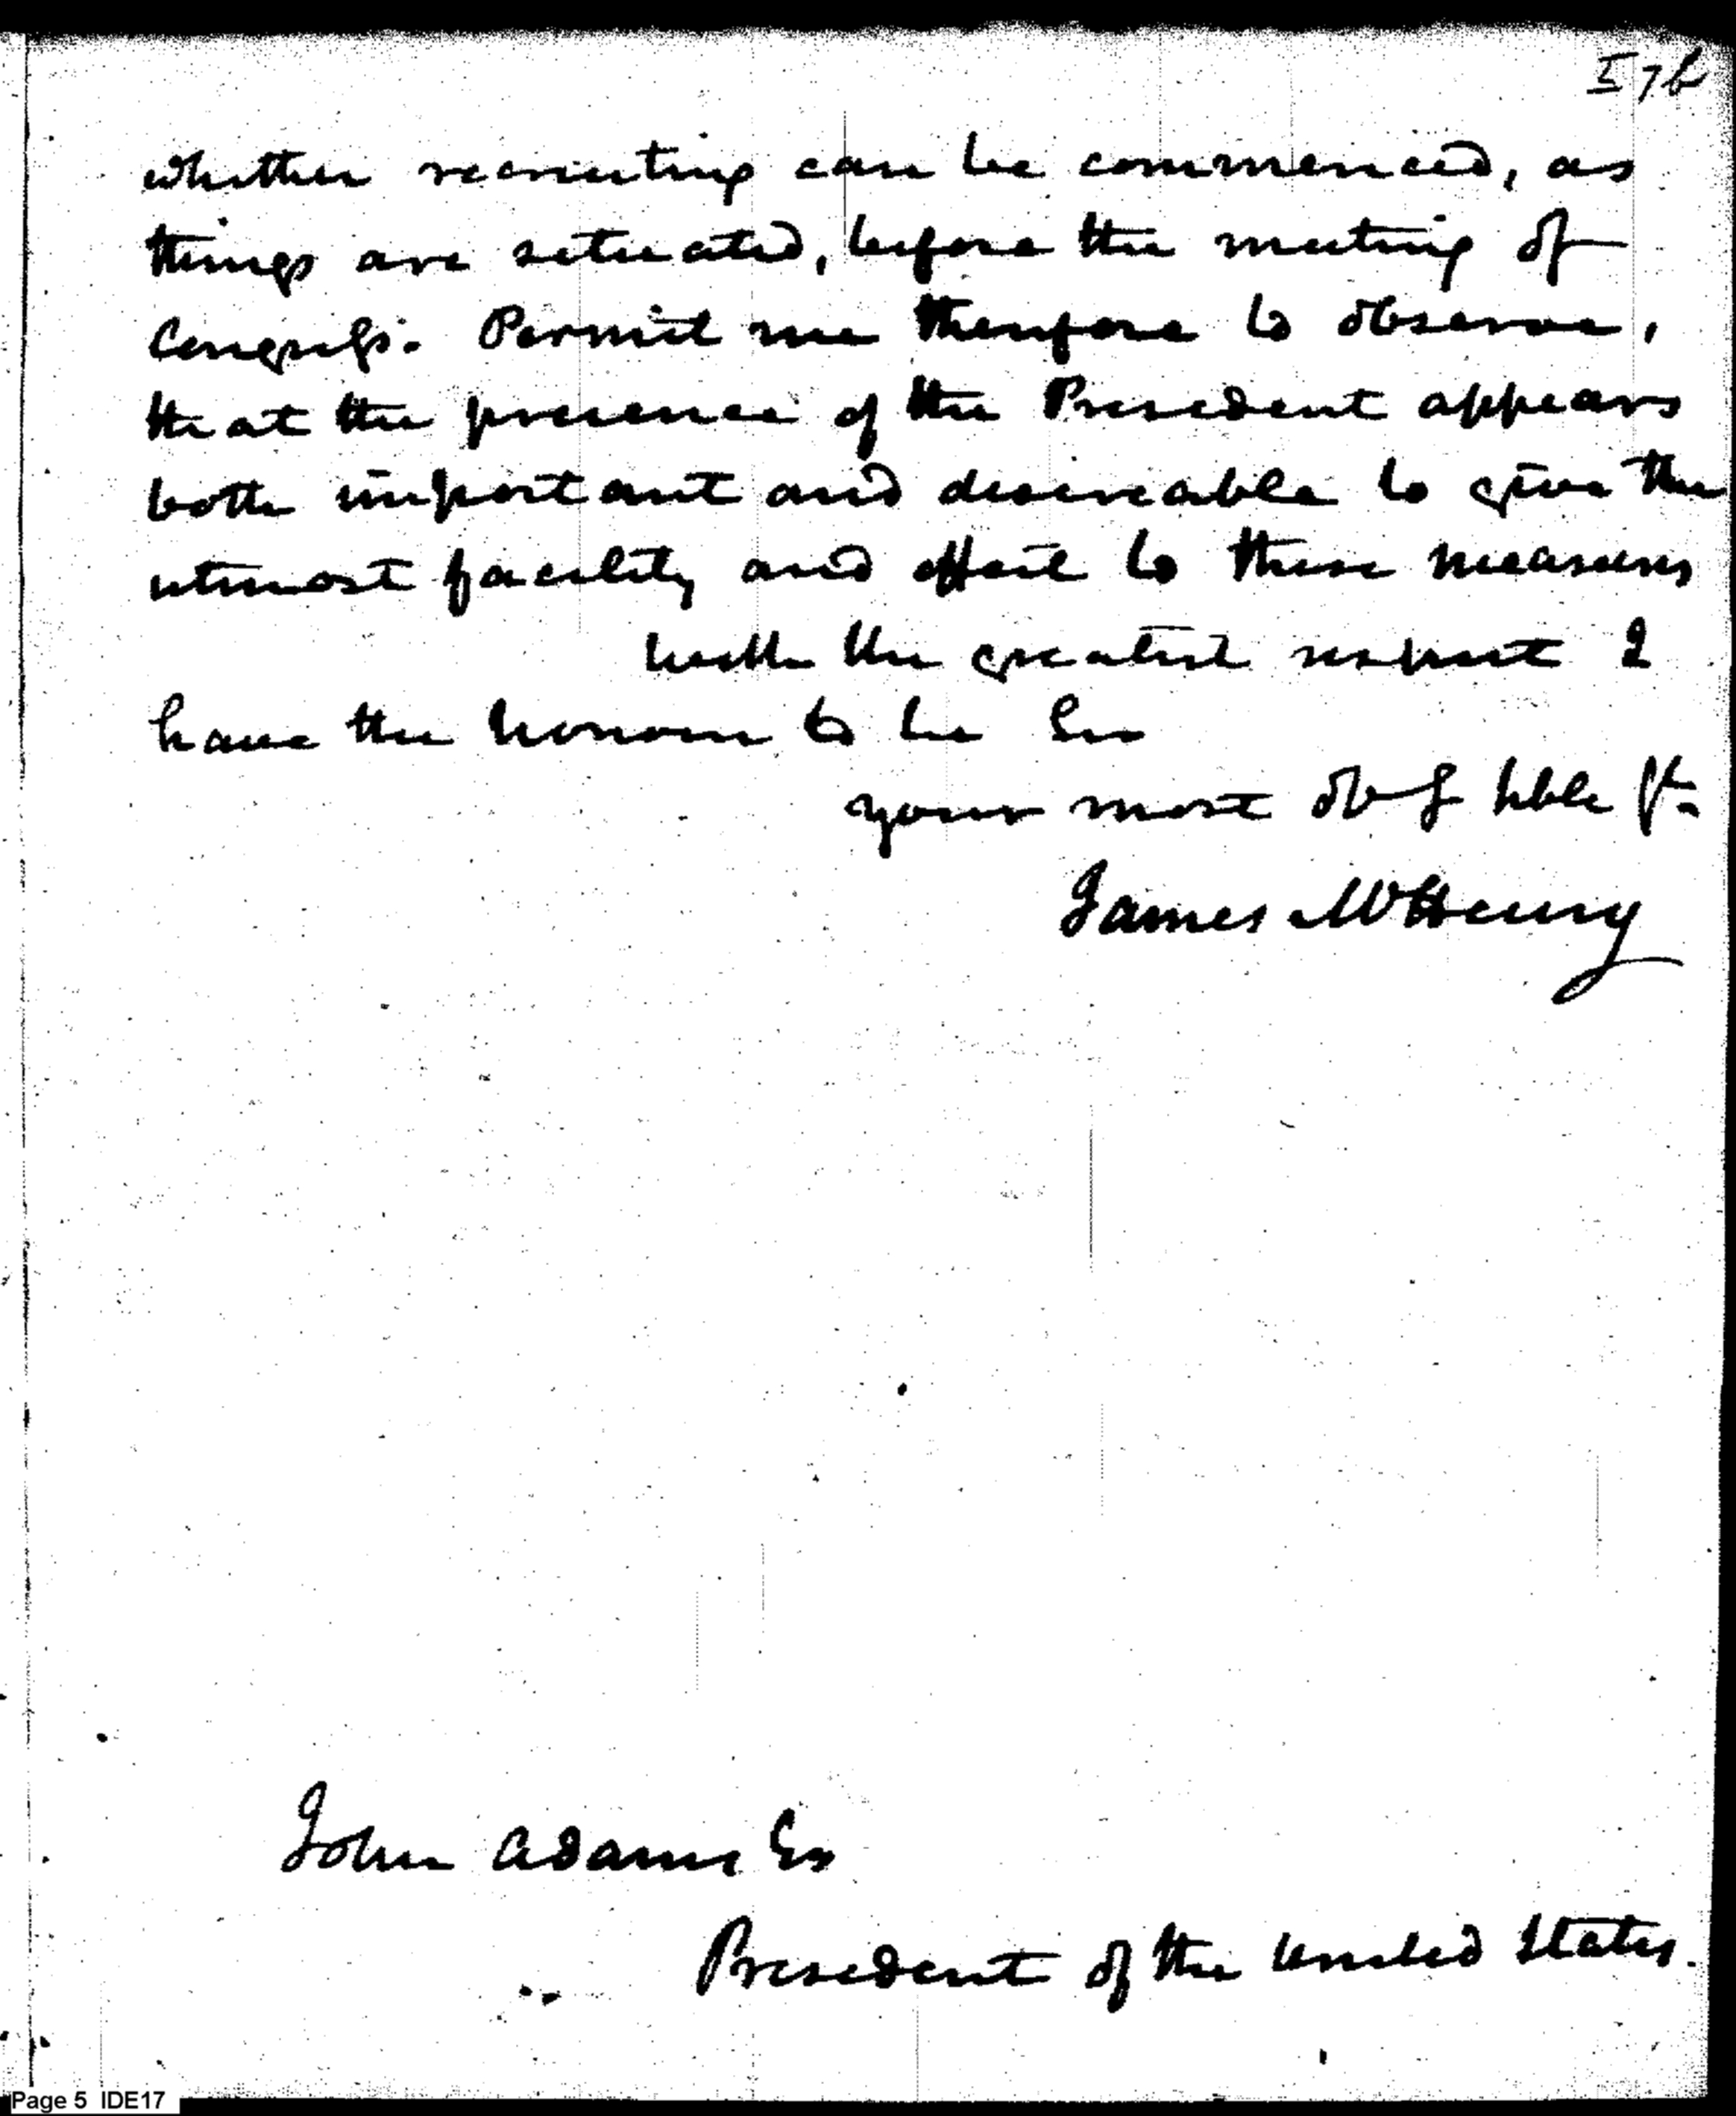 I 7b
whether recruiting can be commenced, as
things are situated, before the meeting of
Congress. Permit me therefore to observe,
that the presence of the President appears
both important and desireable to give the
utmost facility and effect to these measures
With the greatest respect I
have the honour to be Sir
your most obt hble St.
James McHenry
John Adams Es
President of the United States.
Page 5 IDE17